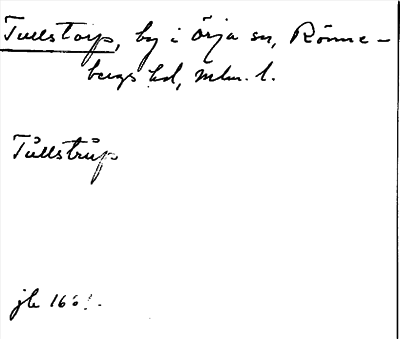 Tullstorp, by i Örja sn, Rönne-
bergs hd, Mlm. l.
Tůllstrůp
jb